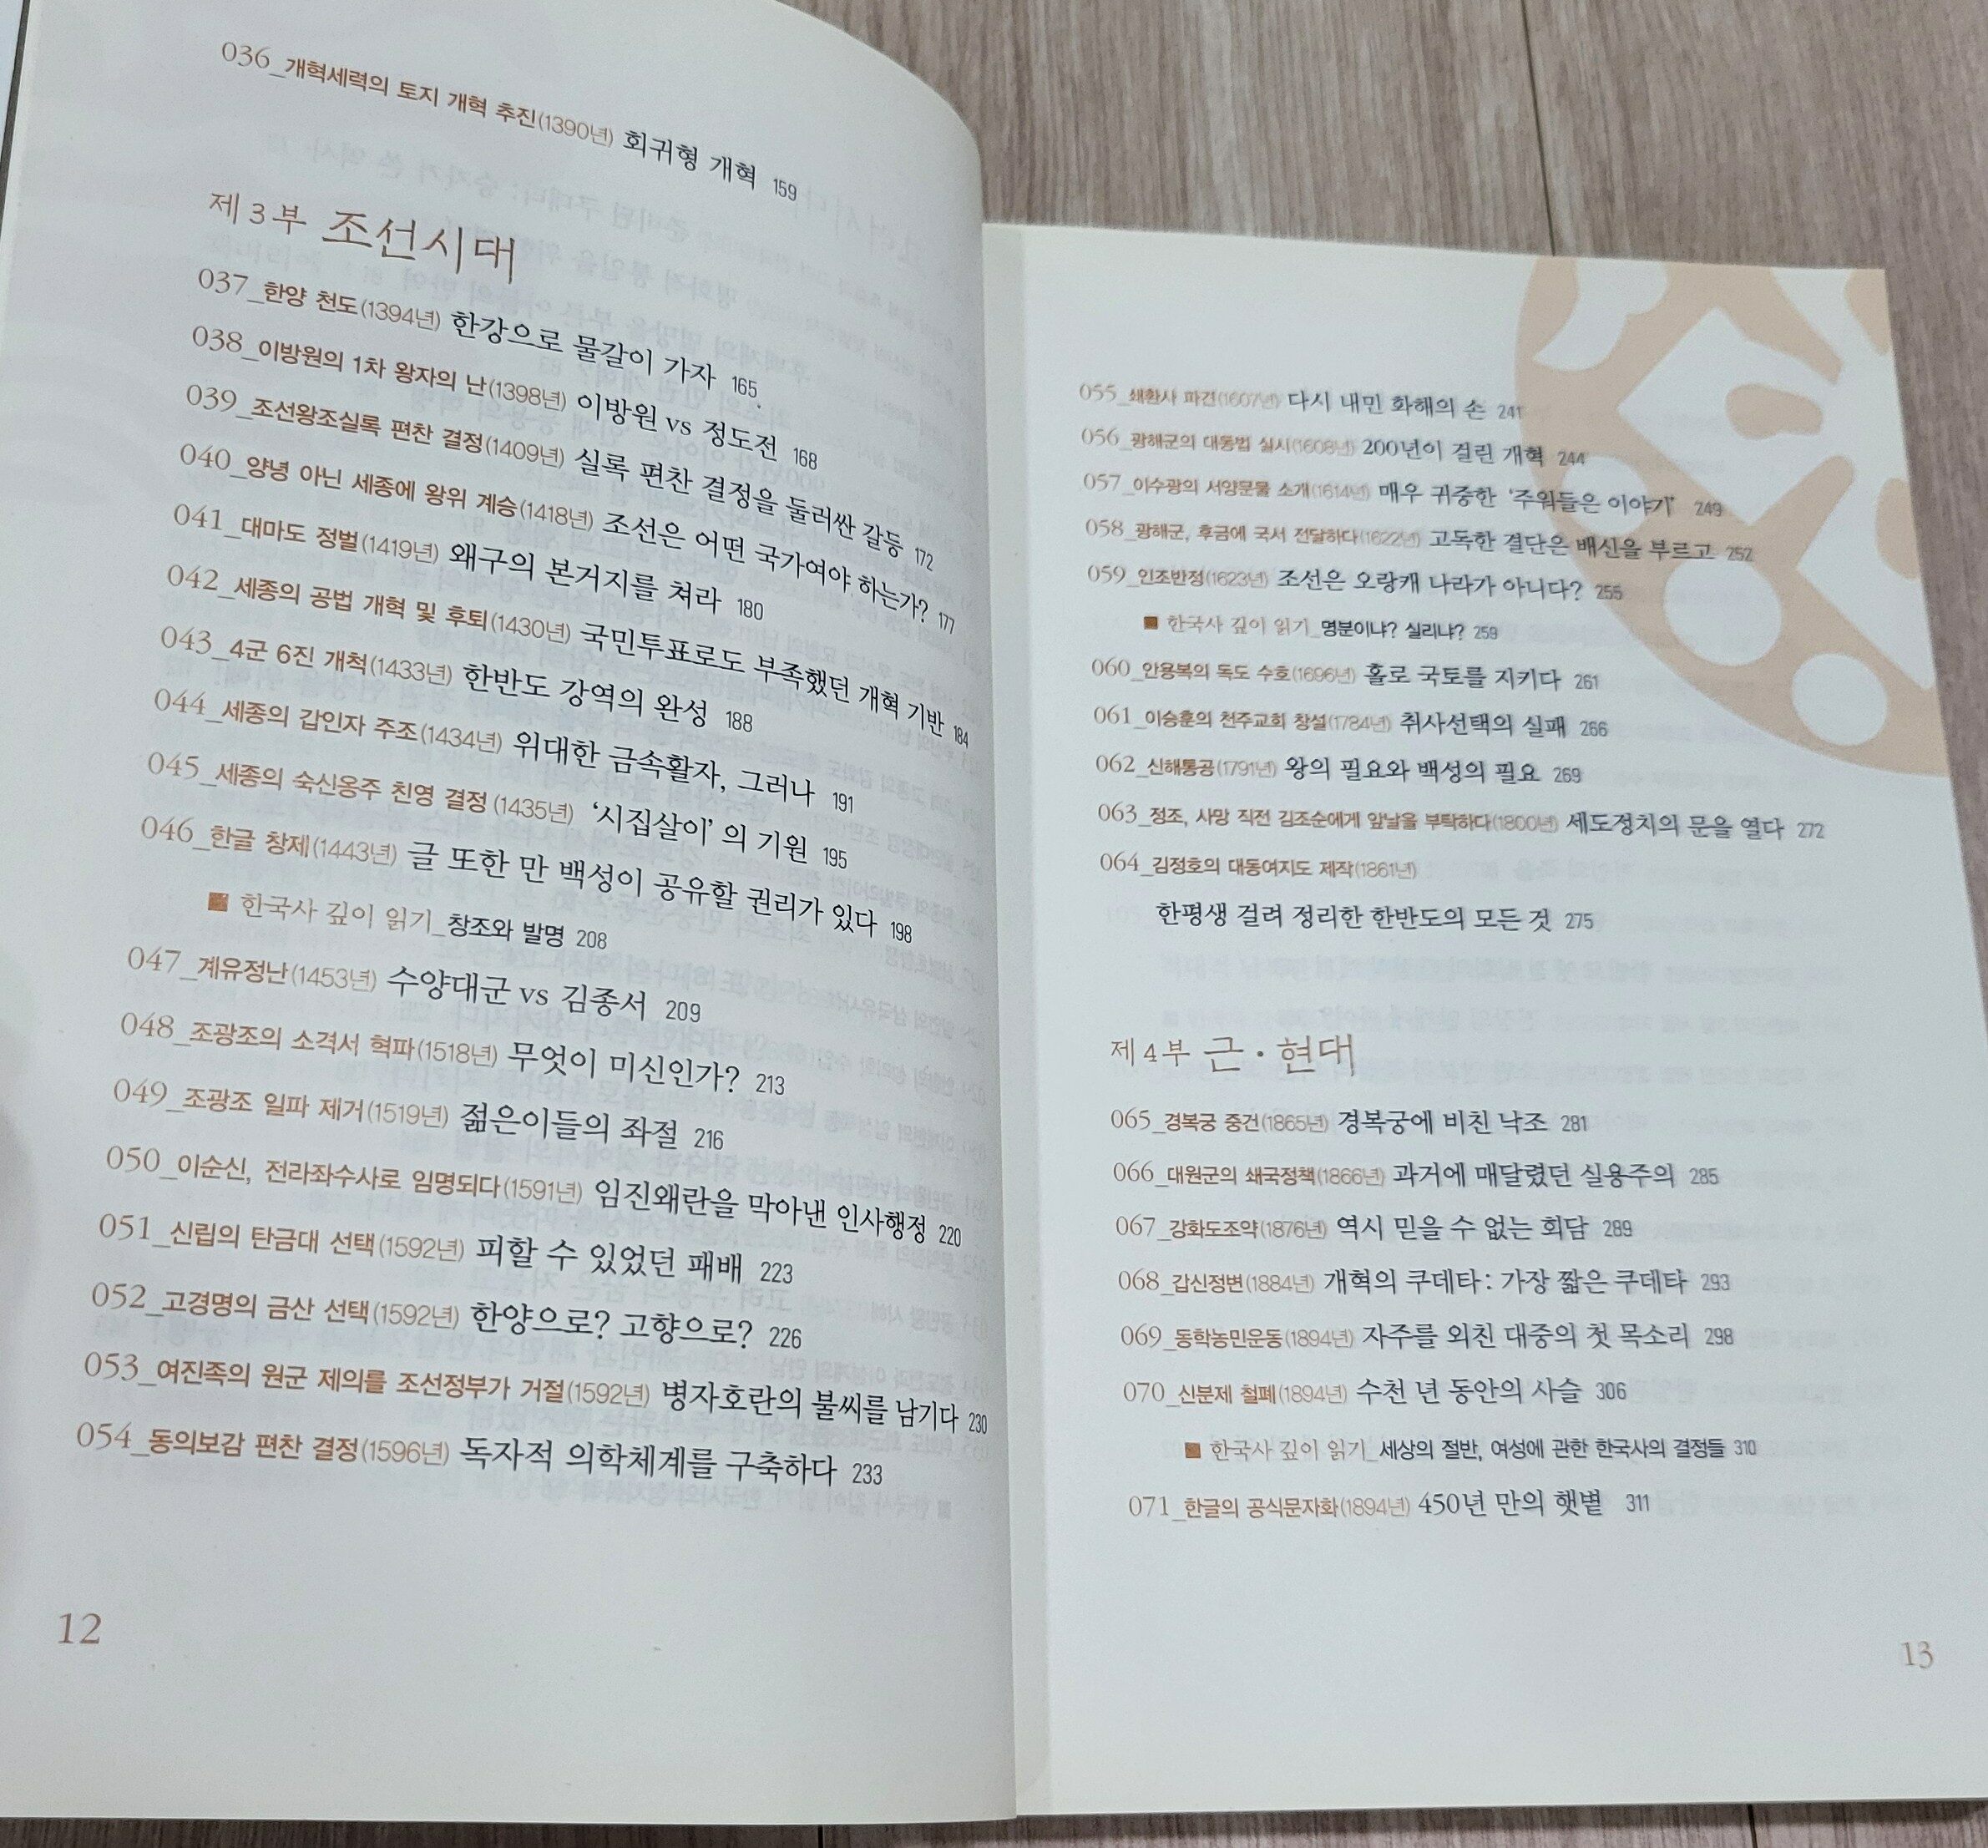 036_개혁세력의 토지 개혁 추진(1390년) 회귀형 개혁 159
제3부 조선시대
037_한양 천도(1394년) 한강으로 물갈이 가자 165
038_이방원의 1차 왕자의 난(1398년) 이방원 vs 정도전 168
039_조선왕조실록 편찬 결정(1409년) 실록 편찬 결정을 둘러싼 갈등 172
040_양녕 아닌 세종에 왕위 계승(1418년) 조선은 어떤 국가여야 하는가? 177
041_대마도 정벌(1419년) 왜구의 본거지를 쳐라 180
042_세종의 공법 개혁 및 후퇴(1430년) 국민투표로도 부족했던 개혁 기반 184
043_4군 6진 개척(1433년) 한반도 강역의 완성 188
044_세종의 갑인자 주조(1434년) 위대한 금속활자, 그러나 191
045_세종의 숙신옹주 친영 결정 (1435년) ‘시집살이’의 기원 195
046_한글 창제(1443년) 글 또한 만 백성이 공유할 권리가 있다 198
■ 한국사 깊이 읽기_창조와 발명 208
047_계유정난(1453년) 수양대군 vs 김종서 209
048_조광조의 소격서 혁파(1518년) 무엇이 미신인가? 213
049_조광조 일파 제거(1519년) 젊은이들의 좌절 216
050_이순신, 전라좌수사로 임명되다(1591년) 임진왜란을 막아낸 인사행정 220
051_신립의 탄금대 선택(1592년) 피할 수 있었던 패배 223
052_고경명의 금산 선택(1592년) 한양으로? 고향으로? 226
053_여진족의 원군 제의를 조선정부가 거절(1592년) 병자호란의 불씨를 남기다 230
054_동의보감 편찬 결정(1596년) 독자적 의학체계를 구축하다 233
12
055_쇄환사 파견(1607년) 다시 내민 화해의 손 241
056_광해군의 대동법 실시(1608년) 200년이 걸린 개혁 244
057_이수광의 서양문물 소개(1614년) 매우 귀중한 ‘주워들은 이야기’ 249
058_광해군, 후금에 국서 전달하다(1622년) 고독한 결단은 배신을 부르고 252
059_인조반정(1623년) 조선은 오랑캐 나라가 아니다? 255
■ 한국사 깊이 읽기_명분이냐? 실리냐? 259
060_안용복의 독도 수호(1696년) 홀로 국토를 지키다 261
061_이승훈의 천주교회 창설(1784년) 취사선택의 실패 266
062_신해통공(1791년) 왕의 필요와 백성의 필요 269
063_정조, 사망 직전 김조순에게 앞날을 부탁하다(1800년) 세도정치의 문을 열다 272
064_김정호의 대동여지도 제작(1861년)
한평생 걸려 정리한 한반도의 모든 것 275
제4부 근·현대
065_경복궁 중건(1865년) 경복궁에 비친 낙조 281
066_대원군의 쇄국정책(1866년) 과거에 매달렸던 실용주의 285
067_강화도조약(1876년) 역시 믿을 수 없는 회담 289
068_갑신정변(1884년) 개혁의 쿠데타: 가장 짧은 쿠데타 293
069_동학농민운동(1894년) 자주를 외친 대중의 첫 목소리 298
070_신분제 철폐(1894년) 수천 년 동안의 사슬 306
■ 한국사 깊이 읽기_세상의 절반, 여성에 관한 한국사의 결정들 310
071_한글의 공식문자화(1894년) 450년 만의 햇볕 311
13